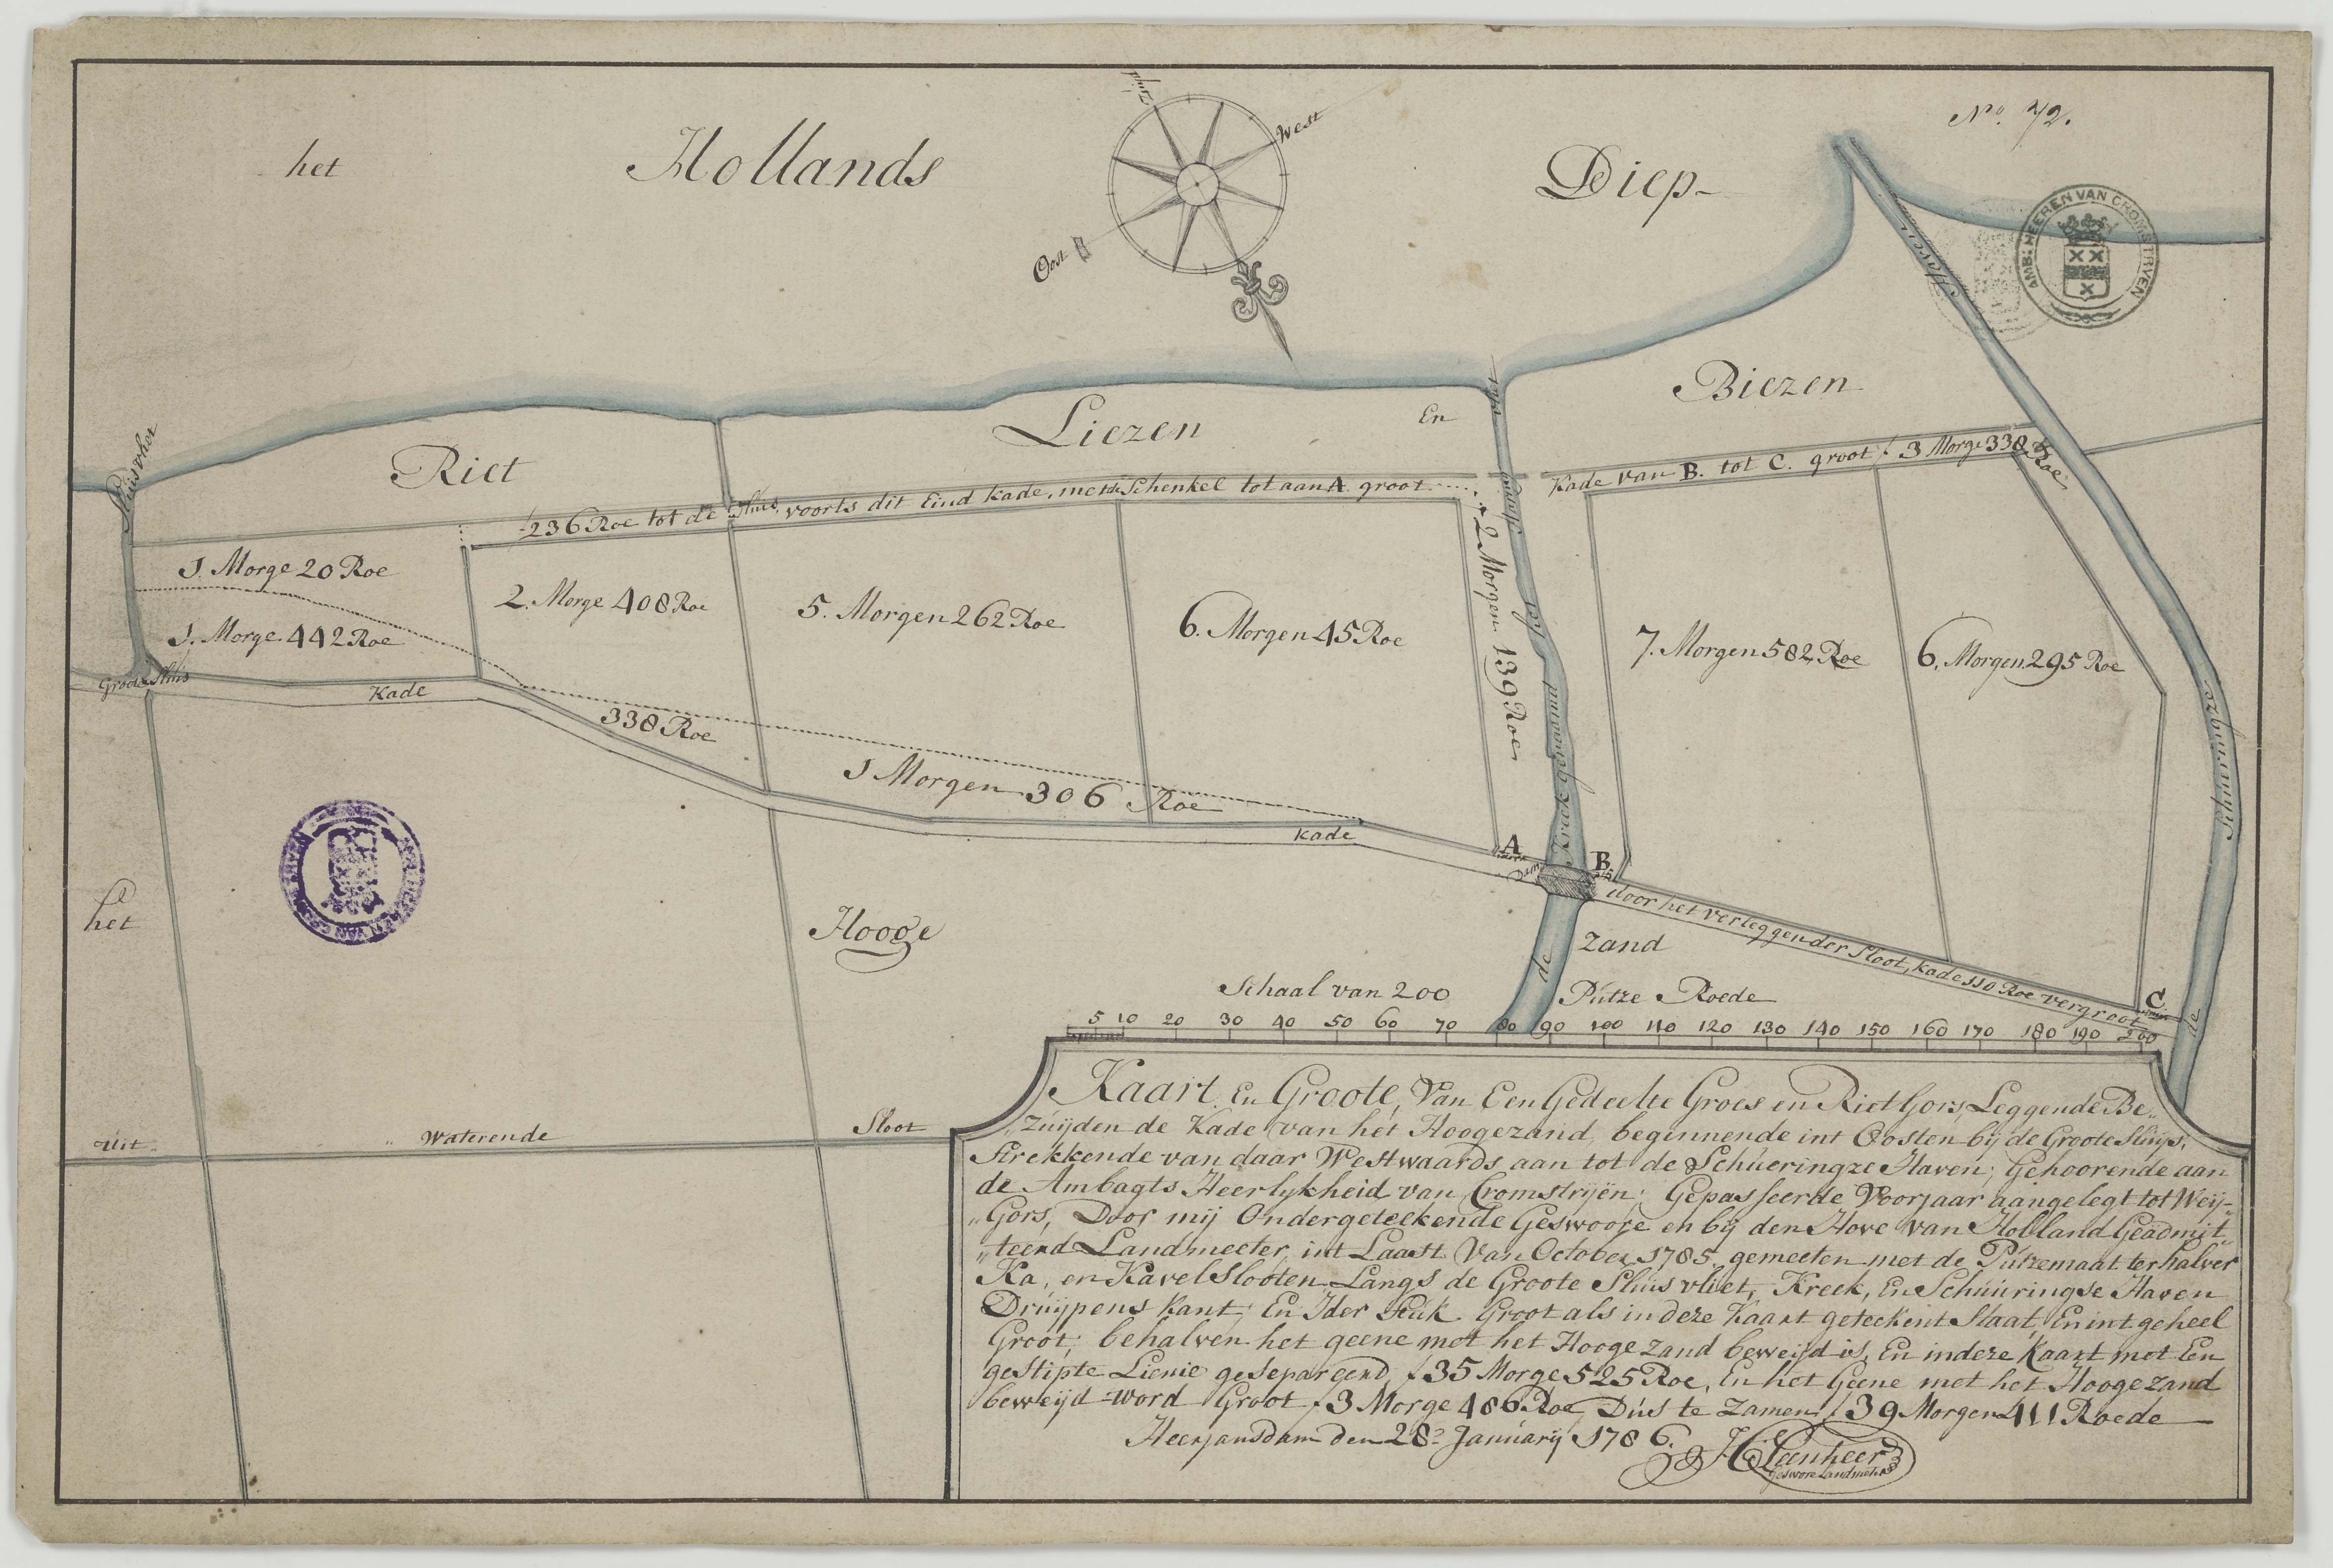 No. 72.
het Hollands Diep
Zuijd
West
Oost
AMB: HEEREN VAN CROMSTRYEN
Haven
Biezen
Liezen
En
Riet
Sluisvliet
Kade van B. tot C. groot 3 Morge 338 Roe
236 Roe tot de Sluis, voorts dit Eind kade, met de Schenkel tot aan A groot
2 Morgen 139 Roe
1. Morge 20 Roe
1. Morge 442 Roe
2. Morge 408 Roe
5. Morgen 262 Roe
6. Morgen 45 Roe
7. Morgen 582 Roe
6. Morgen 295 Roe
Groote Sluis
Kade
338 Roe
1 Morgen 306 Roe
Kade
Kreek genaamd
Schuuringze
A
Dam
B.
door het verleggen der Sloot, kade 110 Roe vergroot
C
het
Hooge
Zand
de
de
Schaal van 200 Putze Roede
5 10 20 30 40 50 60 70 80 90 100 110 120 130 140 150 160 170 180 190 200
uit
Waterende
Sloot
Kaart En Groote, Van Een Gedeelte Groes en Riet Gors, Leggende Be„
„Zuijden de Kade van het Hoogezand, beginnende int Oosten bij de Groote Sluijs,
Strekkende van daar Westwaards aan tot de Schueringze Haven; Gehoorende aan
de Ambagts Heerlykheid van Cromstrijën; Gepasseerde Voorjaar aangelegt tot Weij-
„Gors, Door mij Ondergeteekende Geswoore en bij den Hove van Holland Geadmit„
„teerd Landmeeter, int Laast Van October 1785, gemeeten met de Putzemaat ter halver
Ka, en Kavel Slooten, Langs de Groote Sluis vliet, Kreek, En Schuuringse Haven
Druijpens kant; En Ider Stuk Groot als in deze Kaart geteekent Staat, En int geheel
Groot, behalven het geene met het Hooge Zand beweijd is, En indeze Kaart met Een
gestipte Lienie gesepareerd, 35 Morge 525 Roe, En het Geene met het Hooge zand
beweijd word Groot 3 Morge 486 Roe, Dus te Zamen 39 Morgen 411 Roede
Heerjansdam den 28e January 1786.
Geswore Landmeter